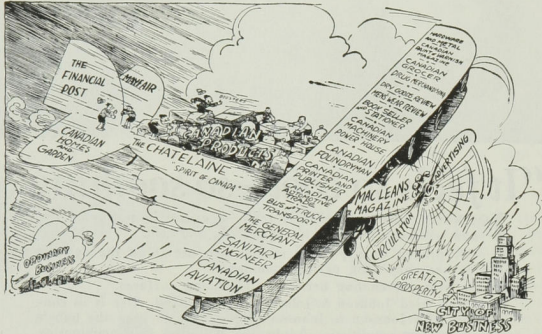 THE
FINANCIAL
POST
MAYFAIR
CANADIAN
HOMES
AND
GARDEN
CANADIAN
PRODUCTS
THE CHATELAINE
SPIRIT OF CANADA
HARDWARE
AND METAL
CANADIAN
PAINT & VARNISH
MAGAZINE
CANADIAN
GROCER
DRUG MERCHANDISING
DRY GOODS REVIEW
MEN'S WEAR REVIEW
BOOKSELLER
AND STATIONER
CANADIAN
MACHINERY
POWER HOUSE
CANADIAN
FOUNDRYMAN
CANADIAN
PRINTER AND
PUBLISHER
CANADIAN
AUTOMOTIVE
TRADE
BUS AND TRUCK
TRANSPORT
THE GENERAL
MERCHANT
SANITARY
ENGINEER
CANADIAN
AVIATION
MACLEANS
MAGAZINE
ADVERTISING
CIRCULATION
ORDINARY
BUSINESS
GREATER
PROSPERITY
CITY OF
NEW BUSINESS